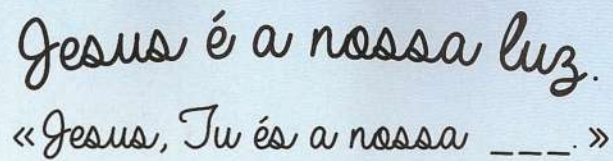 Jesus é a nossa luz.
«Jesus, Tu és a nossa ___.»